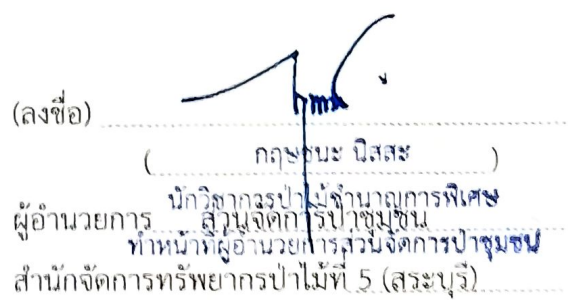 (ลงชื่อ)
( กฤษชนะ นิสสะ )
นักวิชาการป่าไม้ชำนาญการพิเศษ
ผู้อำนวยการ ส่วนจัดการป่าชุมชน
ทำหน้าที่ผู้อำนวยการส่วนจัดการป่าชุมชน
สำนักจัดการทรัพยากรป่าไม้ที่ 5 (สระบุรี)